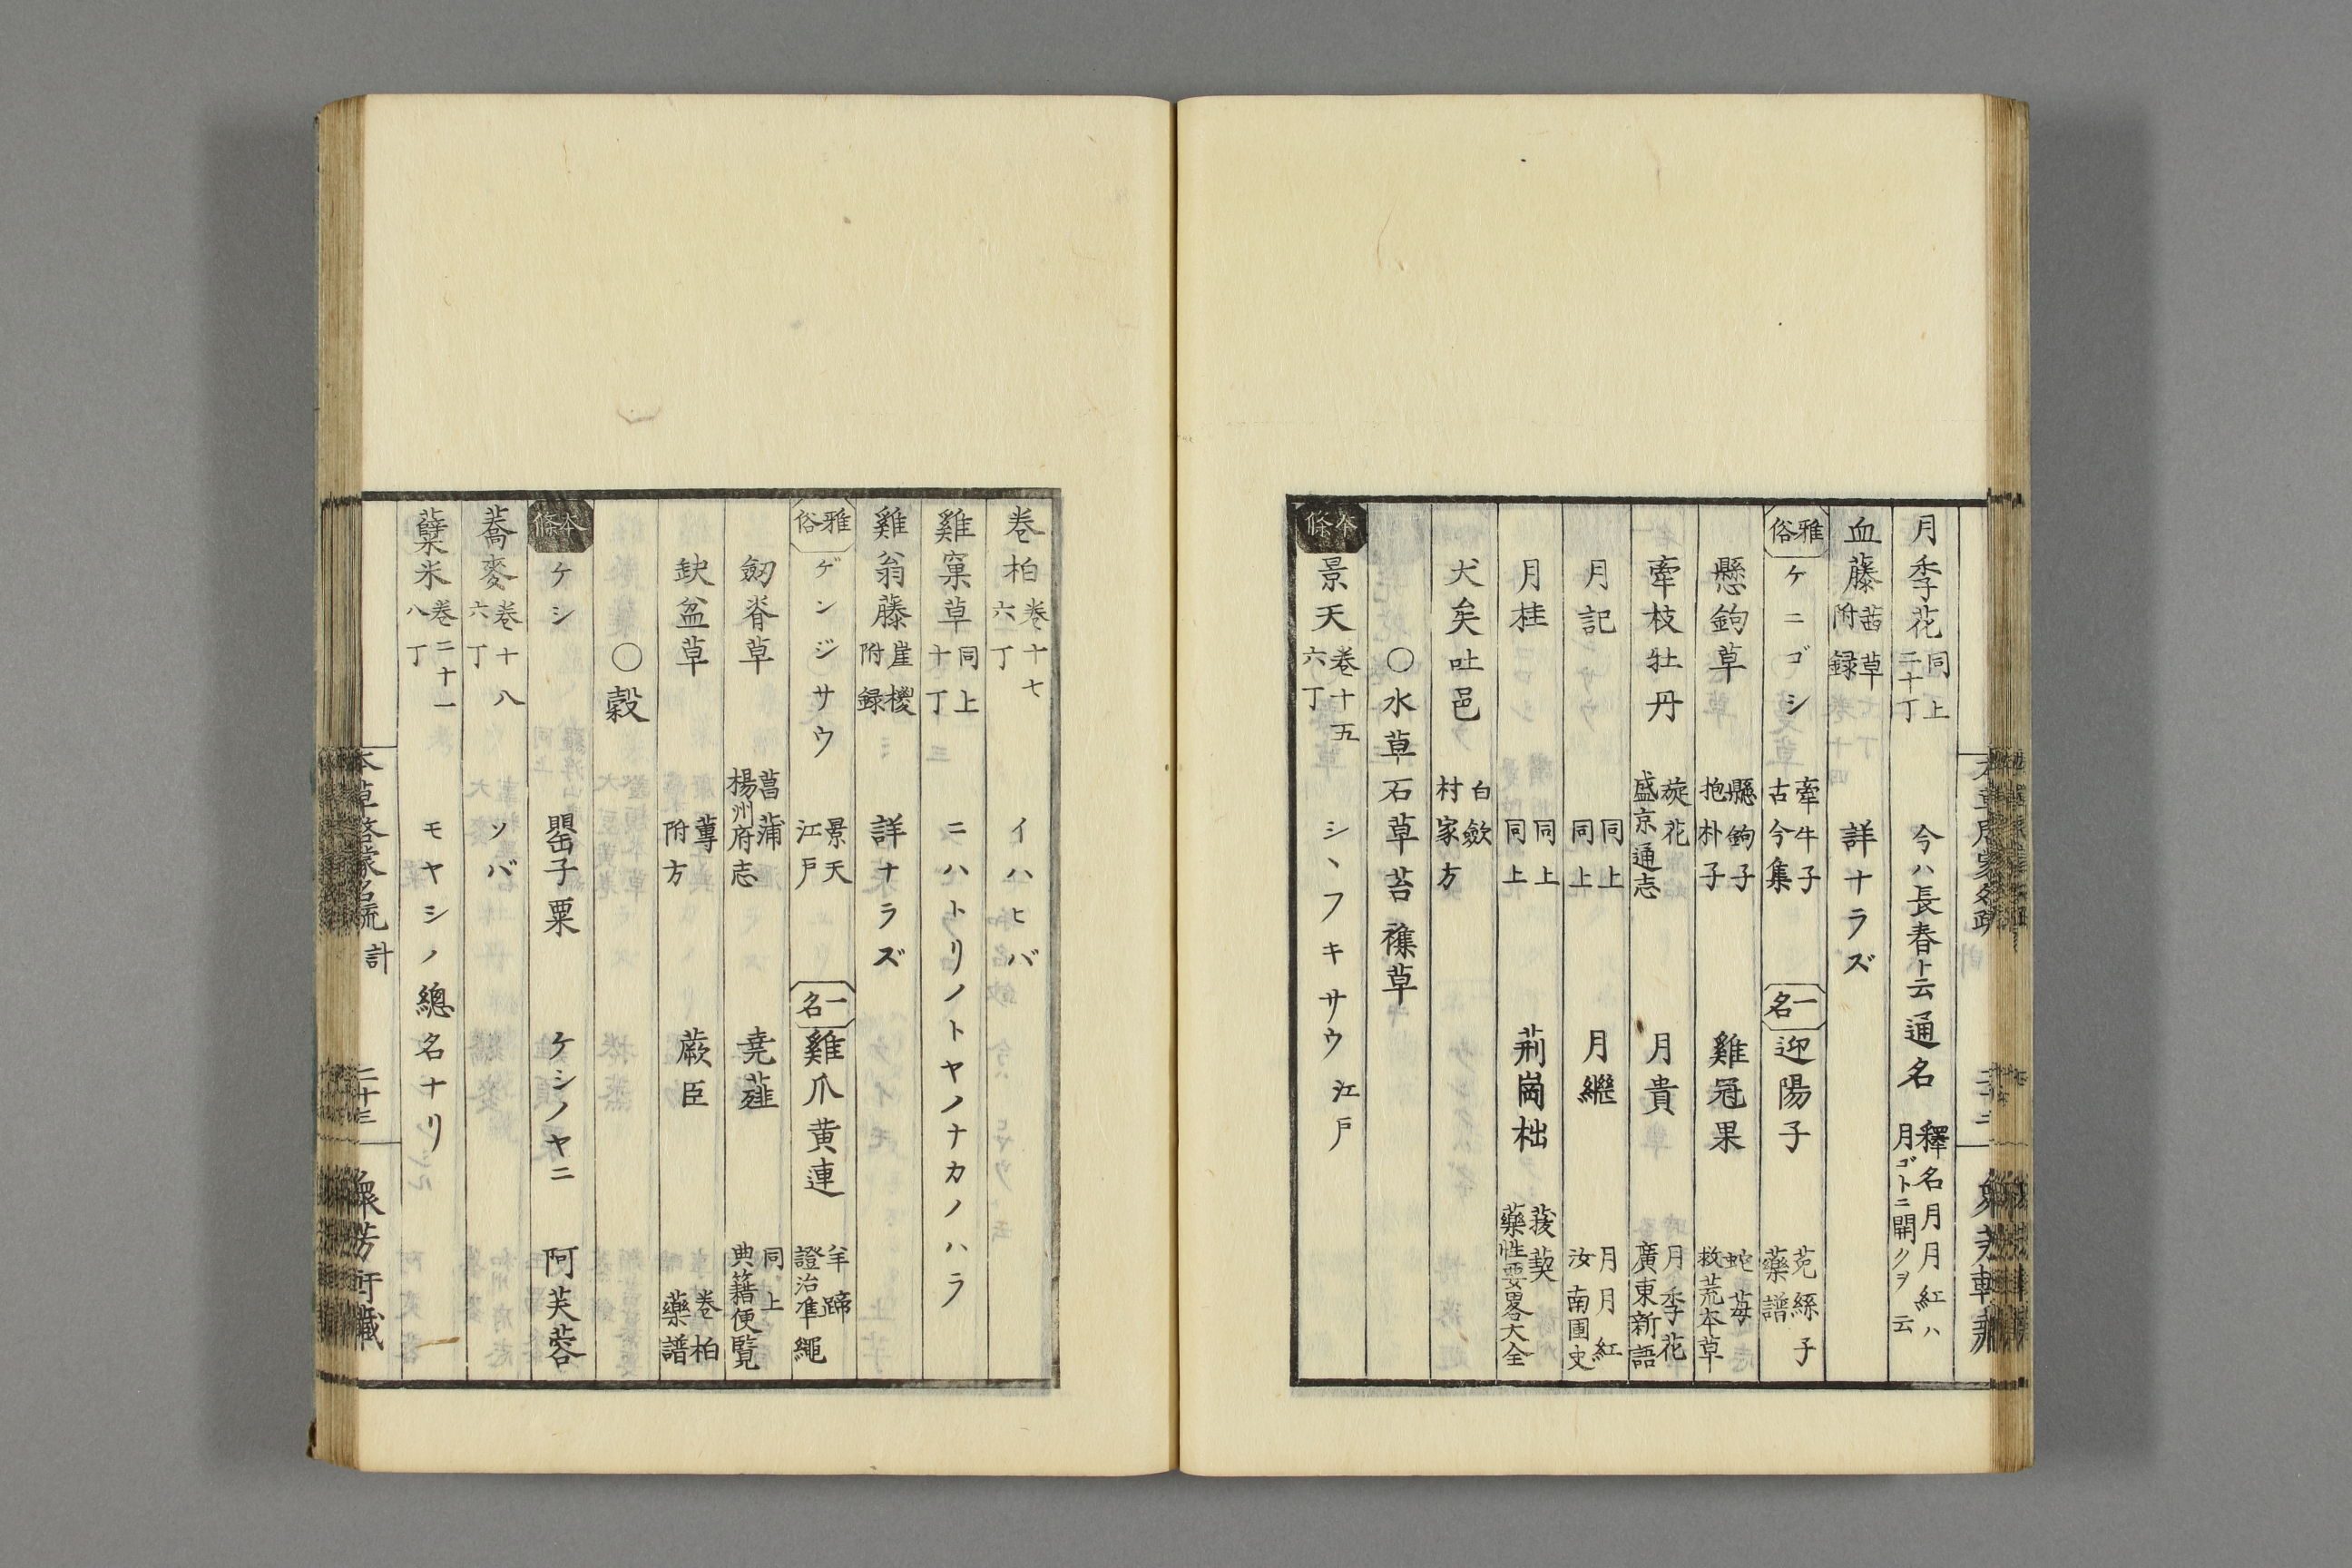 月季花 同上 二十丁 今ハ長春ト云通名 釋名月月紅ハ 月ゴトニ開クヲ云
血藤 茜草 附録 詳ナラズ
雅俗 ケニゴシ 牽牛子 古今集 一名 迎陽子 菟絲子 藥譜
懸鉤草 懸鉤子 抱朴子 雞冠果 蛇苺 救荒本草
牽枝牡丹 旋花 盛京通志 月貴 月季花 廣東新語
月記 同上 同上 月繼 月月紅 汝南圃史
月桂 同上 同上 荊崗柮 菝葜 藥性要畧大全
犬矣吐邑 白蘞 村家方
〇水草石草苔襍草
本條 景天 卷十五 六丁 シヽフキサウ 江戸
卷柏 卷十七 六丁 イハヒバ
雞窠草 同上 十丁 ニハトリノトヤノナカノハラ
雞翁藤 崖㮨 附録 詳ナラズ
雅俗 ゲンジサウ 景天 江戸 一名 雞爪黄連 羊蹄 證治准繩
劒脊草 菖蒲 楊州府志 堯韭 同上 典籍便覽
缺盆草 蓴 附方 蕨臣 卷柏 藥譜
〇穀
本條 ケシ 罌子粟 ケシノヤニ 阿芙蓉
蕎麥 卷十八 六丁 ソバ
蘖米 卷二十一 八丁 モヤシノ總名ナリ
本草啓蒙名疏 計 二十三 衆芳軒藏